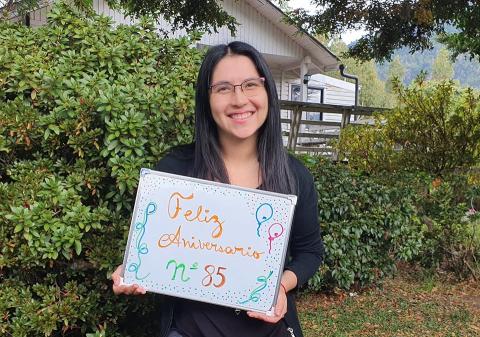 Feliz
Aniversario
N° 85